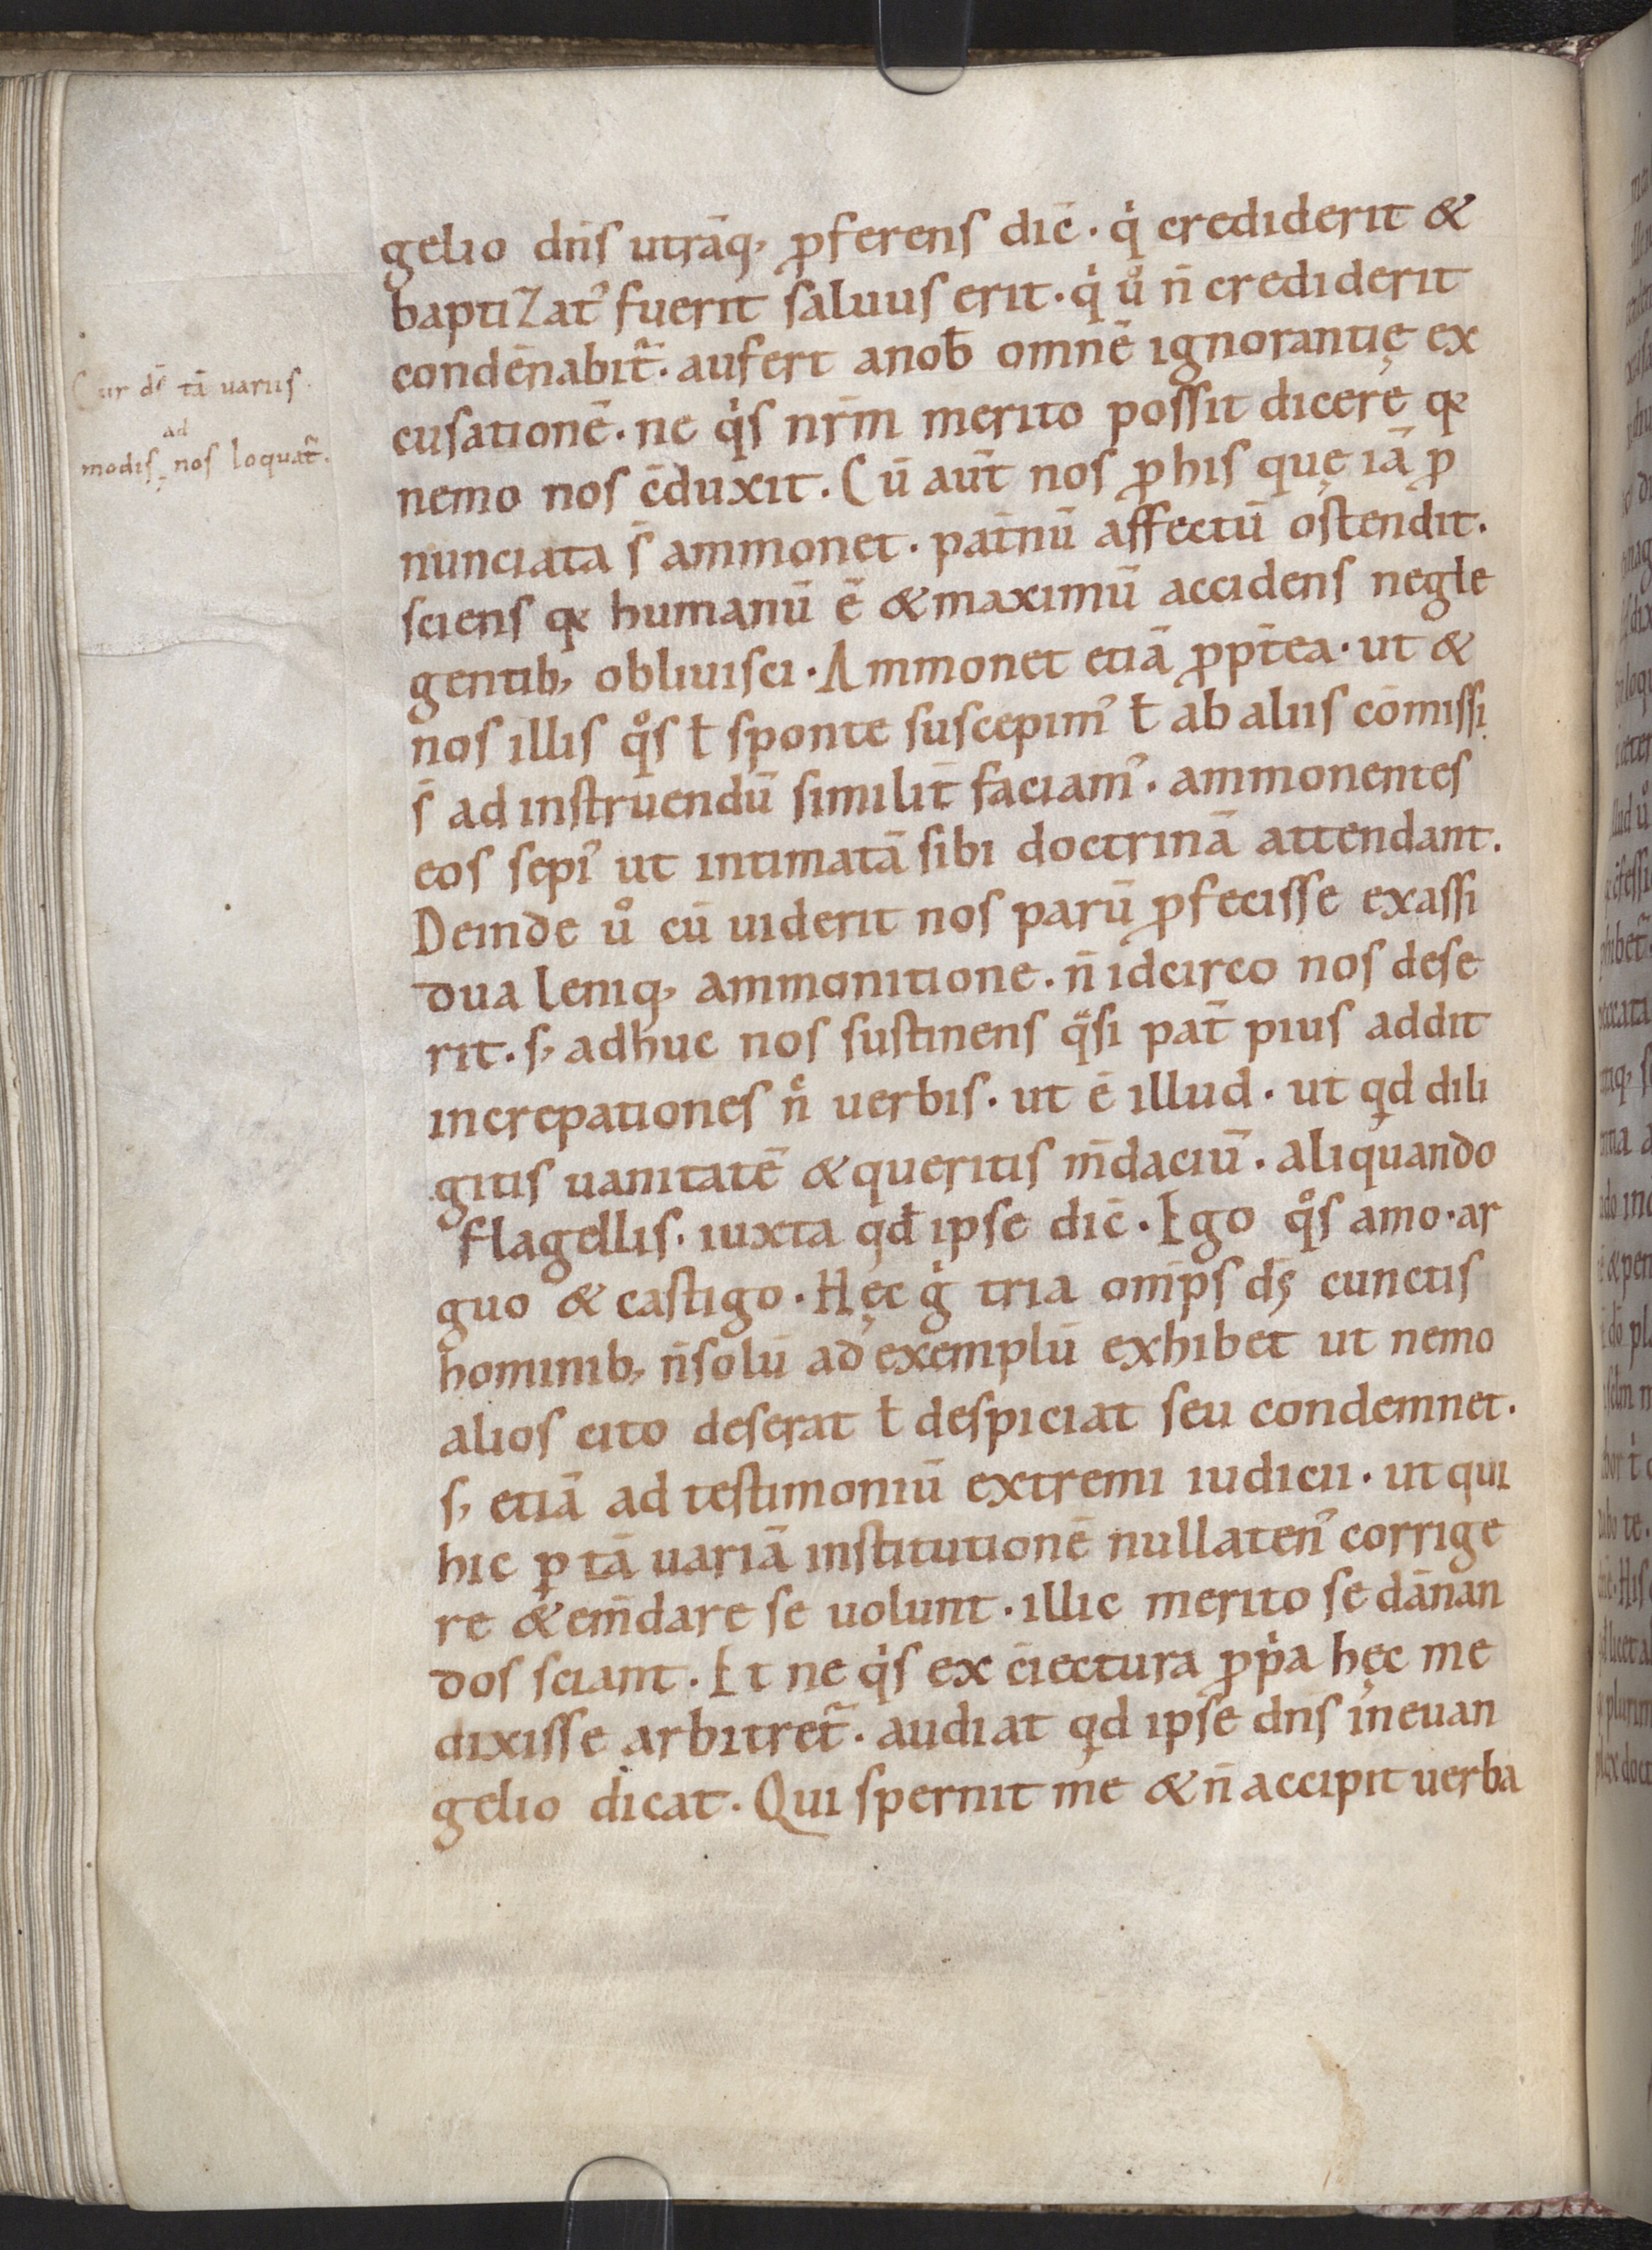 Cur dē tā uariis
ad
modis, nos loquat̃.
gelio dn̄s utrāq, p̄ferens dic̄. q̇ crediderit &
baptizat᾽ fuerit saluus erit. q̇ ů n̄ crediderit
condēnabit̃. aufert anob̄ omnē ignorantię ex
cusationē. ne q̇s nr̄m merito possit dicere qƺ
nemo nos c̄duxit. Cū aut̄ nos p̄ his quę iā p̄
nunciata s̄ ammonet. pat̄nū affectū ostendit.
sciens qƺ humanū ē & maximū accidens negle
gentib, obliuisci. Ammonet etiā p̄pt̄ea. ut &
nos illis q̊s ł sponte suscepim᾽ ł ab aliis cōmissi
s̄ ad instruendū similit̄ faciam᾽. ammonentes
eos sepi᾽ ut intimatā sibi doctrinā attendant.
Deinde ů cū uiderit nos parū p̄fecisse exassi
dua leniq, ammonitione. n̄ idcirco nos dese
rit. s, adhuc nos sustinens q̈si pat̄ pius addit
increpationes n̊ uerbis. ut ē illud. ut qd dili
gitis uanitatē & queritis m̄daciū. aliquando
flagellis. iuxta qđ ipse dic̄. Ego q̊s amo. ar
guo & castigo. Hęc g̊ tria omīps d̄s cunctis
hominib, n̄ solū ad exemplū exhibet ut nemo
alios cito deserat ł despiciat seu condemnet.
s, etiā ad testimoniū extremi iudicii. ut qui
hic ꝑ tā uariā institutionē nullaten᾽ corrige
re & em̄dare se uolunt. illic merito se dānan
dos sciant. Et ne q̇s ex c̄iectura p̄pȧ hęc me
dixisse arbitret̃. audiat qd ipse dn̄s in euan
gelio dicat. Qui spernit me & n̄ accipit uerba